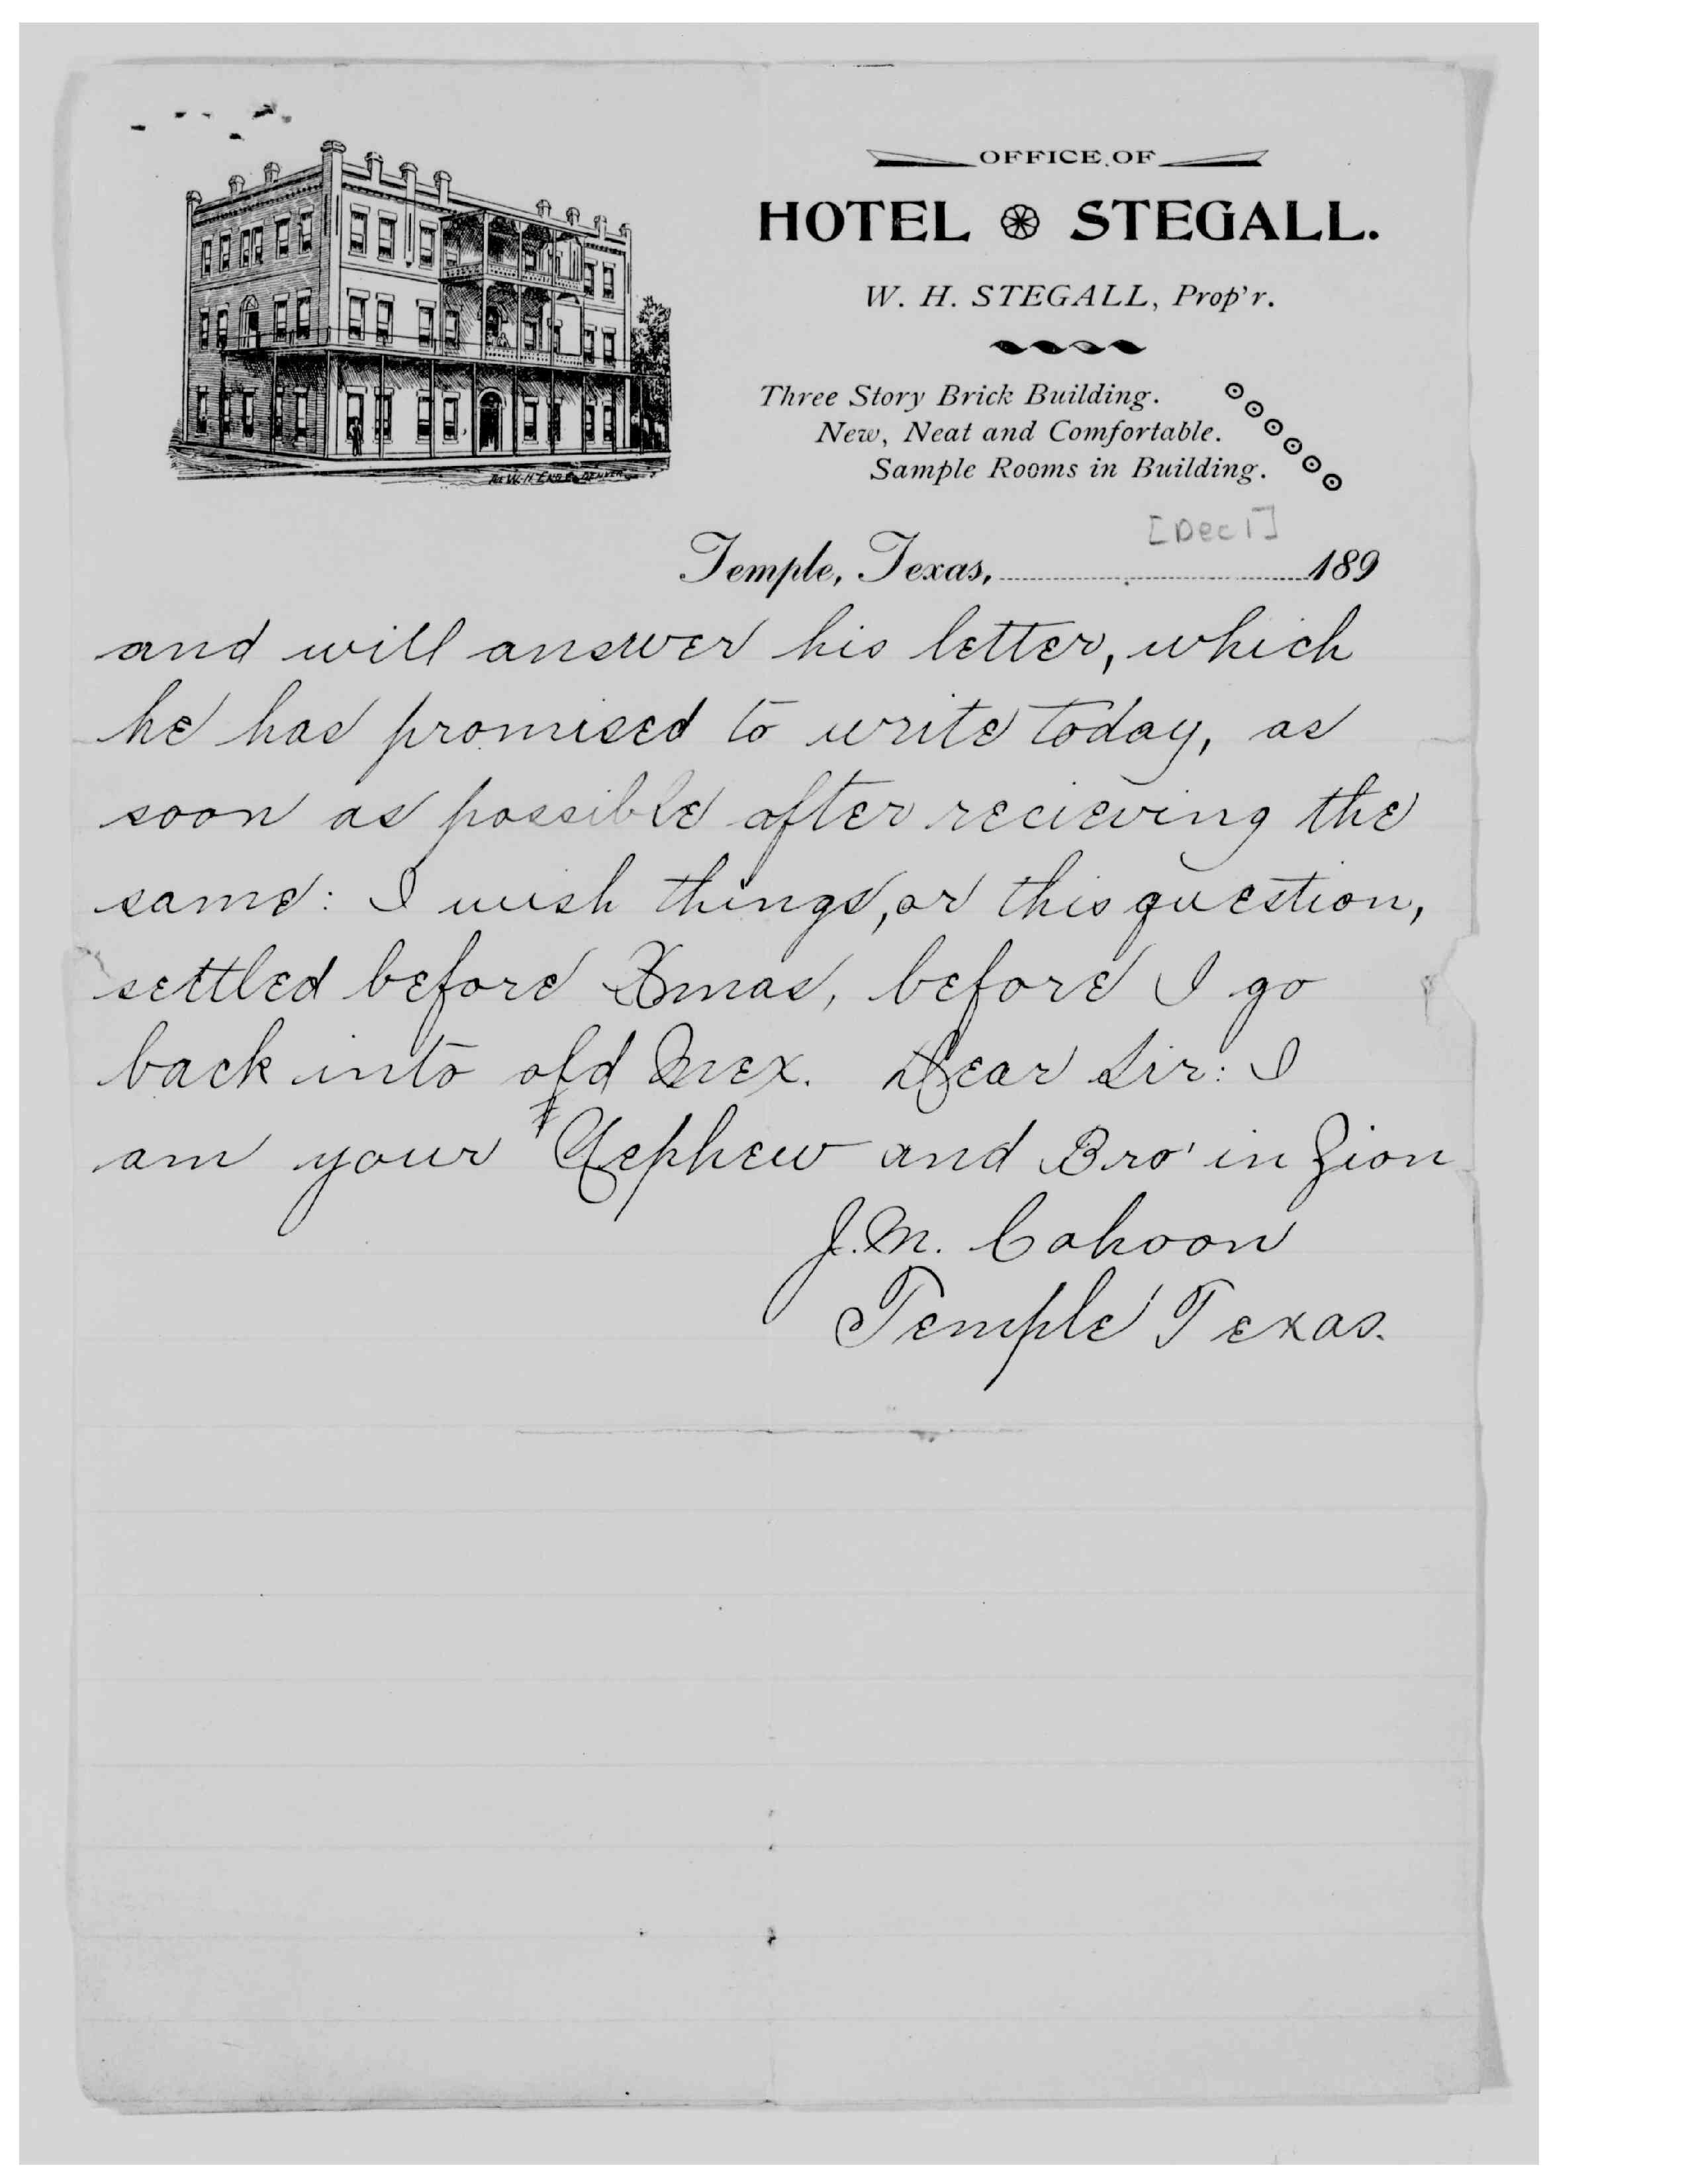 OFFICE OF
HOTEL STEGALL.
W. H. STEGALL, Prop'r.
Three Story Brick Building.
New, Neat and Comfortable.
Sample Rooms in Building.
[Dec 1]
Temple, Texas, 189
and will answer his letter, which
he has promised to write today, as
soon as possible after recieving the
same: I wish things, or this question,
settled before Xmas, before I go
back into old Mex. Dear Sir: I
am your Nephew and Bro' in Zion
J. M. Cahoon
Temple Texas.